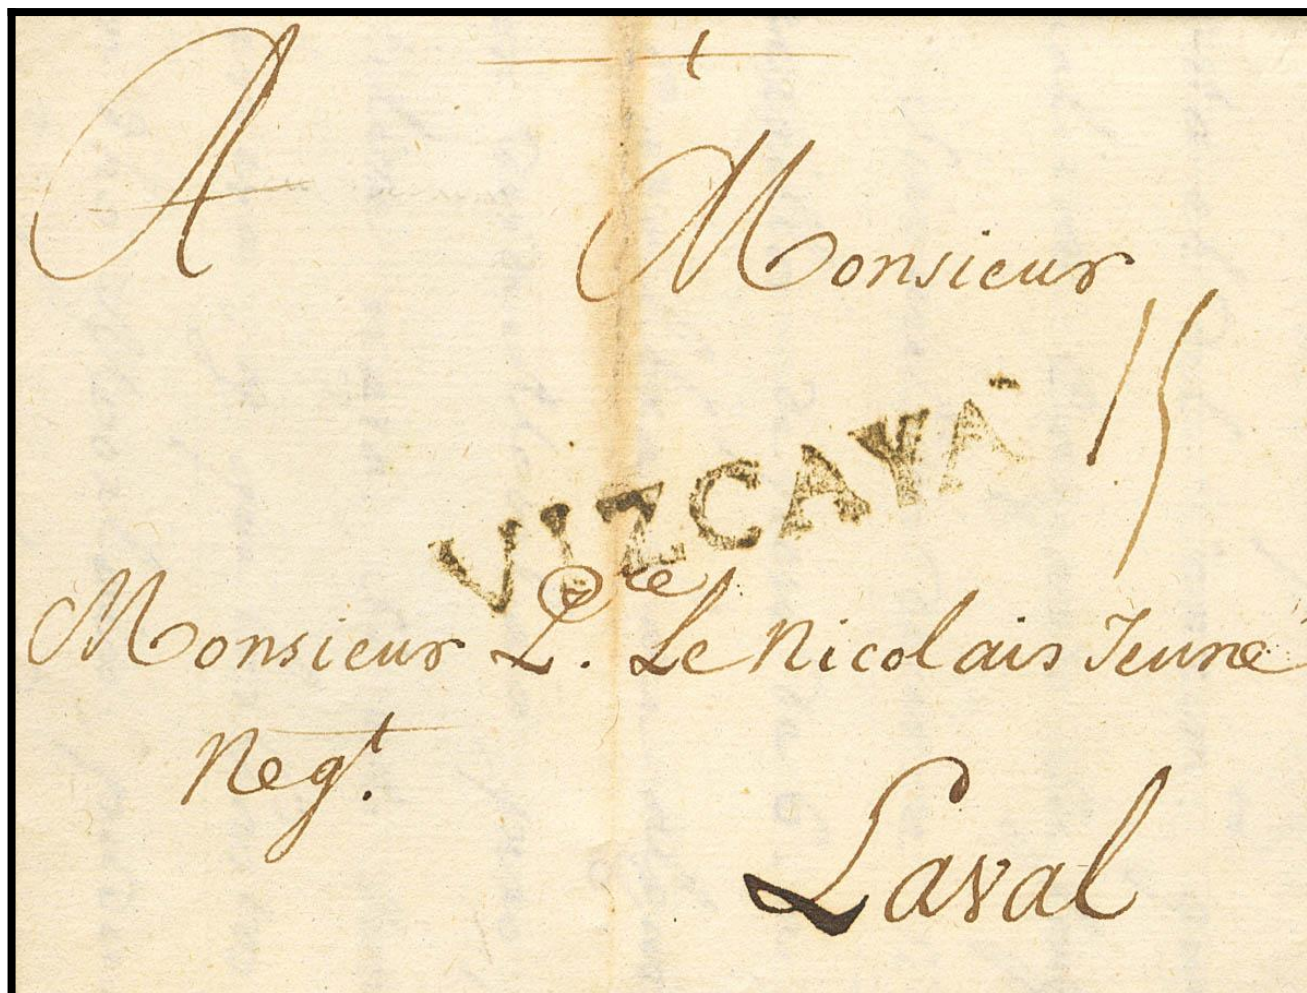 A Monsieur
15
VIZCAYA
Monsieur L. Le Nicolais Jeune
Negt.
Laval